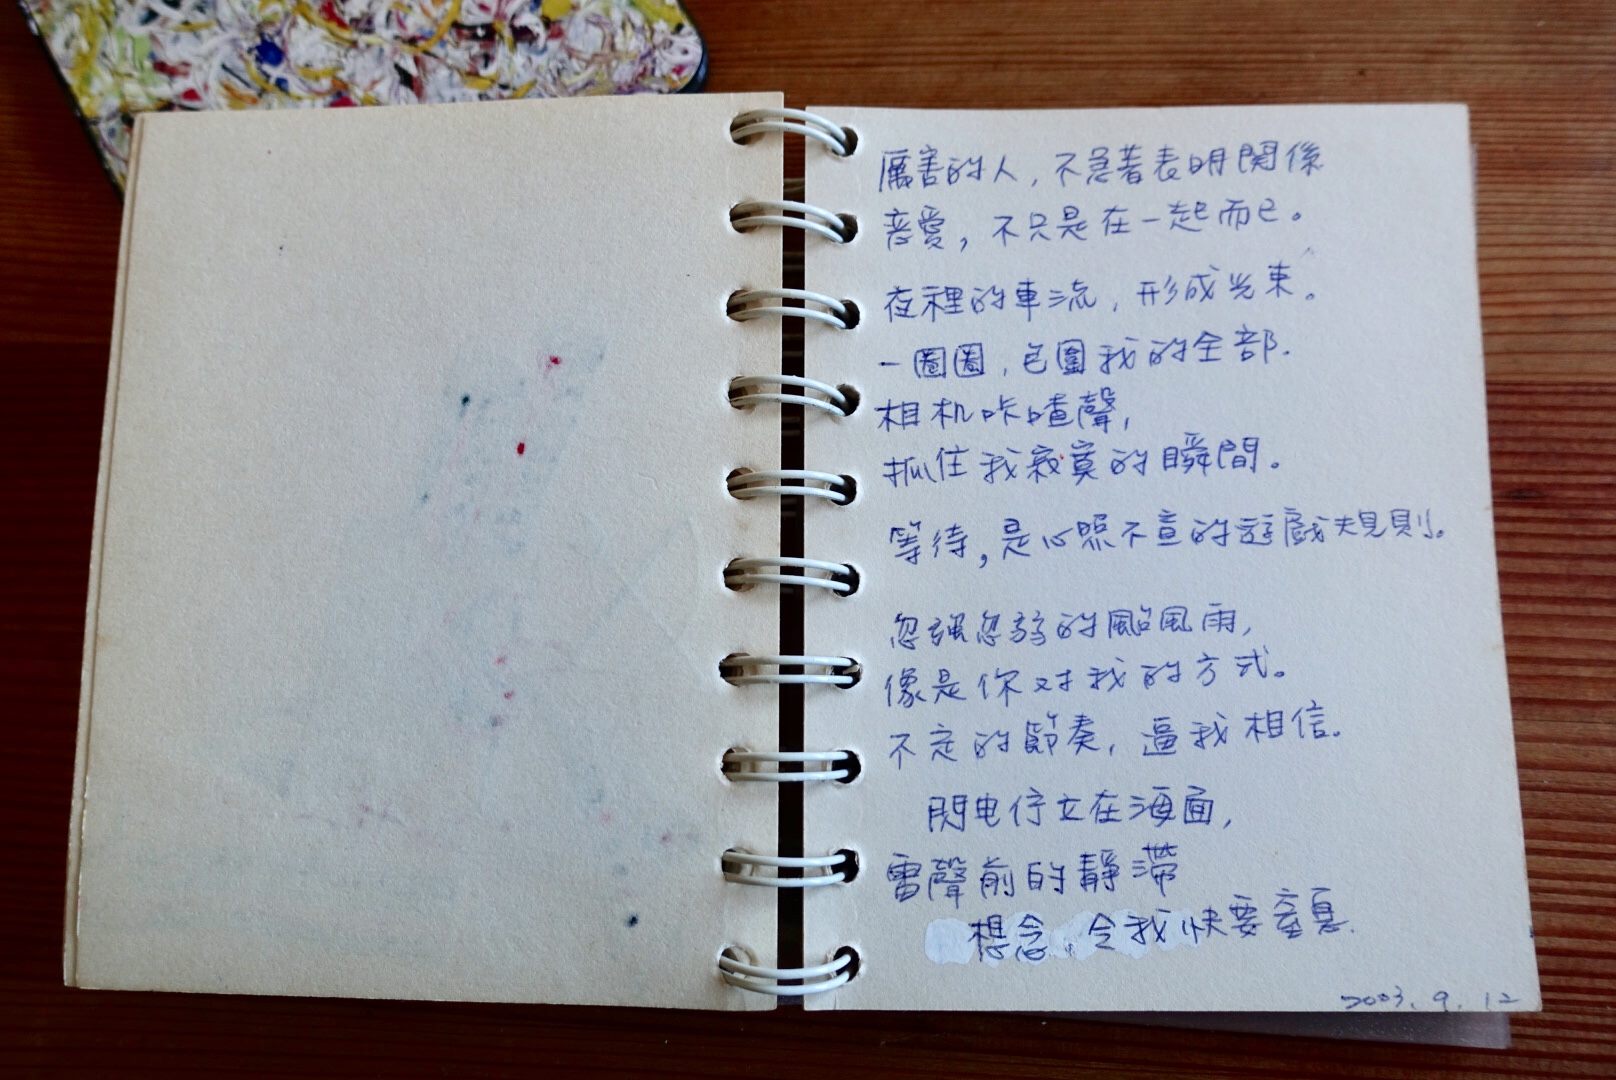 厲害的人，不急著表明關係
意愛，不只是在一起而已。
夜裡的車流，形成光束。
一圈圈，包圍我的全部.
相机咔喳聲，
抓住我寂寞的瞬間。
等待，是心照不宣的遊戲規則。
忽強忽弱的颱風雨，
像是你对我的方式。
不定的節奏，逼我相信。
閃电佇立在海面，
雷聲前的靜滯
想念，令我快要窒息.
2003.9.12